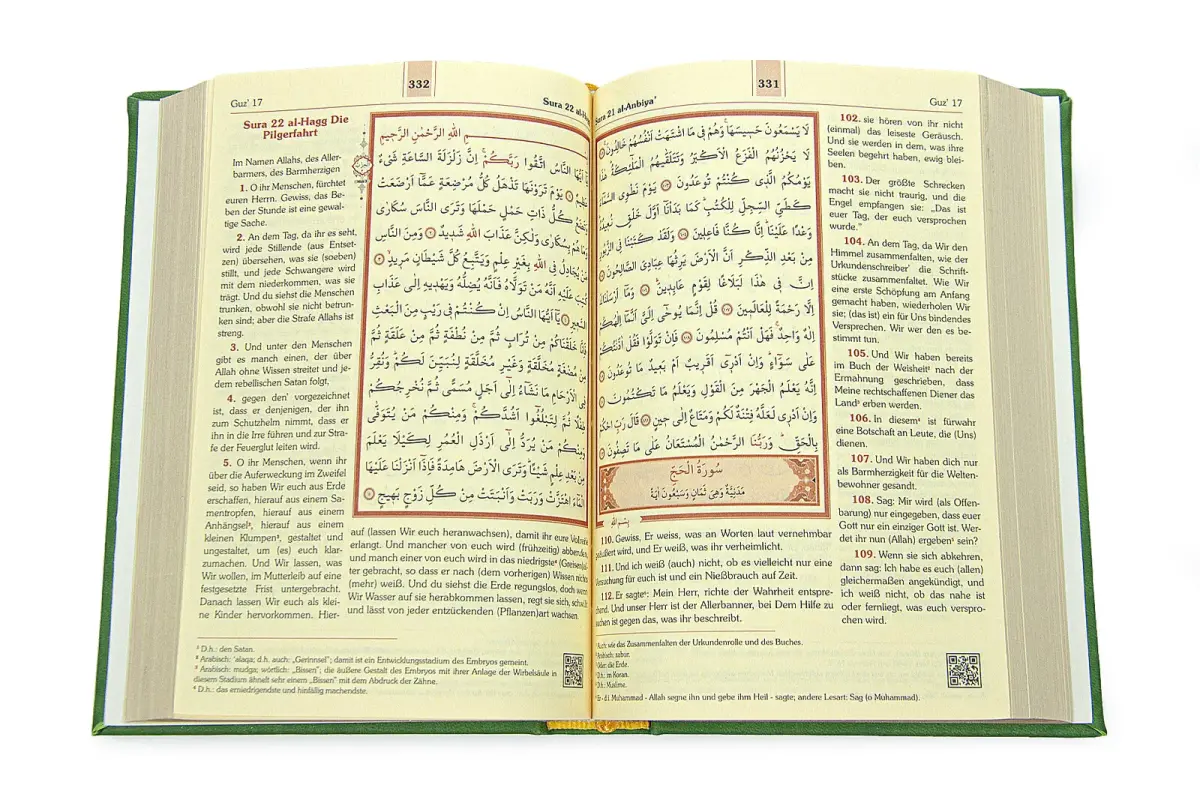 331
Sura 21 al-Anbiya'
Guz' 17
لَا يَسْمَعُونَ حَسِيسَهَا وَهُمْ فِي مَا اشْتَهَتْ اَنْفُسُهُمْ خَالِدُونَ
لَا يَحْزُنُهُمُ الْفَزَعُ الْاَكْبَرُ وَتَتَلَقّٰيهُمُ الْمَلٰٓئِكَةُ
يَوْمُكُمُ الَّذِي كُنْتُمْ تُوعَدُونَ ١٠٣ يَوْمَ نَطْوِي السَّمَٓاءَ
كَطَيِّ السِّجِلِّ لِلْكُتُبِ كَمَا بَدَأْنَٓا اَوَّلَ خَلْقٍ نُعِيدُهُ
وَعْدًا عَلَيْنَا اِنَّا كُنَّا فَاعِلِينَ ١٠٤ وَلَقَدْ كَتَبْنَا فِي الزَّبُورِ
مِنْ بَعْدِ الذِّكْرِ اَنَّ الْاَرْضَ يَرِثُهَا عِبَادِيَ الصَّالِحُونَ
اِنَّ فِي هٰذَا لَبَلَاغًا لِقَوْمٍ عَابِدِينَ ١٠٦ وَمَٓا اَرْسَلْنَاكَ
اِلَّا رَحْمَةً لِلْعَالَمِينَ ١٠٧ قُلْ اِنَّمَا يُوحٰٓى اِلَيَّ اَنَّمَٓا اِلٰهُكُمْ
اِلٰهٌ وَاحِدٌ فَهَلْ اَنْتُمْ مُسْلِمُونَ ١٠٨ فَاِنْ تَوَلَّوْا فَقُلْ اٰذَنْتُكُمْ
عَلٰى سَوَٓاءٍ وَاِنْ اَدْرِٓي اَقَرِيبٌ اَمْ بَعِيدٌ مَا تُوعَدُونَ
اِنَّهُ يَعْلَمُ الْجَهْرَ مِنَ الْقَوْلِ وَيَعْلَمُ مَا تَكْتُمُونَ
وَاِنْ اَدْرِي لَعَلَّهُ فِتْنَةٌ لَكُمْ وَمَتَاعٌ اِلٰى حِينٍ ١١١ قَالَ رَبِّ احْكُمْ
بِالْحَقِّ وَرَبُّنَا الرَّحْمٰنُ الْمُسْتَعَانُ عَلٰى مَا تَصِفُونَ
سُورَةُ الْحَجِّ
مَدَنِيَّةٌ وَهِيَ ثَمَانٍ وَسَبْعُونَ اٰيَةً
بِسْمِ اللّٰهِ
102. sie hören von ihr nicht
(einmal) das leiseste Geräusch.
Und sie werden in dem, was ihre
Seelen begehrt haben, ewig blei-
ben.
103. Der größte Schrecken
macht sie nicht traurig, und die
Engel empfangen sie: „Das ist
euer Tag, der euch versprochen
wurde."
104. An dem Tag, da Wir den
Himmel zusammenfalten, wie der
Urkundenschreiber¹ die Schrift-
stücke zusammenfaltet. Wie Wir
eine erste Schöpfung am Anfang
gemacht haben, wiederholen Wir
sie; (das ist) ein für Uns bindendes
Versprechen. Wir wer den es be-
stimmt tun.
105. Und Wir haben bereits
im Buch der Weisheit² nach der
Ermahnung geschrieben, dass
Meine rechtschaffenen Diener das
Land³ erben werden.
106. In diesem⁴ ist fürwahr
eine Botschaft an Leute, die (Uns)
dienen.
107. Und Wir haben dich nur
als Barmherzigkeit für die Welten-
bewohner gesandt.
108. Sag: Mir wird (als Offen-
barung) nur eingegeben, dass euer
Gott nur ein einziger Gott ist. Wer-
det ihr nun (Allah) ergeben⁵ sein?
109. Wenn sie sich abkehren,
dann sag: Ich habe es euch (allen)
gleichermaßen angekündigt, und
ich weiß nicht, ob das nahe ist
oder fernliegt, was euch verspro-
chen wird.
110. Gewiss, Er weiss, was an Worten laut vernehmbar
geäußert wird, und Er weiß, was ihr verheimlicht.
111. Und ich weiß (auch) nicht, ob es vielleicht nur eine
Versuchung für euch ist und ein Nießbrauch auf Zeit.
112. Er sagte⁶: Mein Herr, richte der Wahrheit entspre-
chend. Und unser Herr ist der Allerbanner, bei Dem Hilfe zu
suchen ist gegen das, was ihr beschreibt.
Auch: wie das Zusammenfalten der Urkundenrolle und des Buches.
Arabisch: sabur.
Oder: die Erde.
D.h.: im Koran.
D.h.: Muslime.
Er - d.i. Muhammad - Allah segne ihn und gebe ihm Heil - sagte; andere Lesart: Sag (o Muhammad).
Guz' 17
332
Sura 22 al-Hagg
Sura 22 al-Hagg Die
Pilgerfahrt
Im Namen Allahs, des Aller-
barmers, des Barmherzigen
1. O ihr Menschen, fürchtet
euren Herrn. Gewiss, das Be-
ben der Stunde ist eine gewal-
tige Sache.
2. An dem Tag, da ihr es seht,
wird jede Stillende (aus Entset-
zen) übersehen, was sie (soeben)
stillt, und jede Schwangere wird
mit dem niederkommen, was sie
trägt. Und du siehst die Menschen
trunken, obwohl sie nicht betrun-
ken sind; aber die Strafe Allahs ist
streng.
3. Und unter den Menschen
gibt es manch einen, der über
Allah ohne Wissen streitet und je-
dem rebellischen Satan folgt,
4. gegen den³ vorgezeichnet
ist, dass er denjenigen, der ihn
zum Schutzhelm nimmt, dass er
ihn in die Irre führen und zur Stra-
fe der Feuerglut leiten wird.
5. O ihr Menschen, wenn ihr
über die Auferweckung im Zweifel
seid, so haben Wir euch aus Erde
erschaffen, hierauf aus einem Sa-
mentropfen, hierauf aus einem
Anhängsel⁴, hierauf aus einem
kleinen Klumpen⁵, gestaltet und
ungestaltet, um (es) euch klar-
zumachen. Und Wir lassen, was
Wir wollen, im Mutterleib auf eine
festgesetzte Frist untergebracht.
Danach lassen Wir euch als klei-
ne Kinder hervorkommen. Hier-
اللّٰهِ الرَّحْمٰنِ الرَّحِيمِ
يَٓا اَيُّهَا النَّاسُ اتَّقُوا رَبَّكُمْ اِنَّ زَلْزَلَةَ السَّاعَةِ شَيْءٌ
عَظِيمٌ ١ يَوْمَ تَرَوْنَهَا تَذْهَلُ كُلُّ مُرْضِعَةٍ عَمَّٓا اَرْضَعَتْ
وَتَضَعُ كُلُّ ذَاتِ حَمْلٍ حَمْلَهَا وَتَرَى النَّاسَ سُكَارٰى
وَمَا هُمْ بِسُكَارٰى وَلٰكِنَّ عَذَابَ اللّٰهِ شَدِيدٌ ٢ وَمِنَ النَّاسِ
مَنْ يُجَادِلُ فِي اللّٰهِ بِغَيْرِ عِلْمٍ وَيَتَّبِعُ كُلَّ شَيْطَانٍ مَرِيدٍ
كُتِبَ عَلَيْهِ اَنَّهُ مَنْ تَوَلَّاهُ فَاَنَّهُ يُضِلُّهُ وَيَهْدِيهِ اِلٰى عَذَابِ
السَّعِيرِ ٤ يَٓا اَيُّهَا النَّاسُ اِنْ كُنْتُمْ فِي رَيْبٍ مِنَ الْبَعْثِ
فَاِنَّا خَلَقْنَاكُمْ مِنْ تُرَابٍ ثُمَّ مِنْ نُطْفَةٍ ثُمَّ مِنْ عَلَقَةٍ ثُمَّ
مِنْ مُضْغَةٍ مُخَلَّقَةٍ وَغَيْرِ مُخَلَّقَةٍ لِنُبَيِّنَ لَكُمْ وَنُقِرُّ
فِي الْاَرْحَامِ مَا نَشَٓاءُ اِلٰٓى اَجَلٍ مُسَمًّى ثُمَّ نُخْرِجُكُمْ
طِفْلًا ثُمَّ لِتَبْلُغُٓوا اَشُدَّكُمْ وَمِنْكُمْ مَنْ يُتَوَفّٰى
وَمِنْكُمْ مَنْ يُرَدُّ اِلٰٓى اَرْذَلِ الْعُمُرِ لِكَيْلَا يَعْلَمَ
مِنْ بَعْدِ عِلْمٍ شَيْـًٔا وَتَرَى الْاَرْضَ هَامِدَةً فَاِذَٓا اَنْزَلْنَا عَلَيْهَا
الْمَٓاءَ اهْتَزَّتْ وَرَبَتْ وَاَنْبَتَتْ مِنْ كُلِّ زَوْجٍ بَهِيجٍ ٥
auf (lassen Wir euch heranwachsen), damit ihr eure Vollreife
erlangt. Und mancher von euch wird (frühzeitig) abberufen,
und manch einer von euch wird in das niedrigste⁶ (Greisen)al-
ter gebracht, so dass er nach (dem vorherigen) Wissen nichts
(mehr) weiß. Und du siehst die Erde regungslos, doch wenn
Wir Wasser auf sie herabkommen lassen, regt sie sich, schwillt
und lässt von jeder entzückenden (Pflanzen)art wachsen.
³ D.h.: den Satan.
⁴ Arabisch: 'alaqa; d.h. auch: „Gerinnsel"; damit ist ein Entwicklungsstadium des Embryos gemeint.
⁵ Arabisch: mudga; wörtlich: „Bissen"; die äußere Gestalt des Embryos mit ihrer Anlage der Wirbelsäule in
diesem Stadium ähnelt sehr einem „Bissen" mit dem Abdruck der Zähne.
⁶ D.h.: das erniedrigendste und hinfällig machendste.